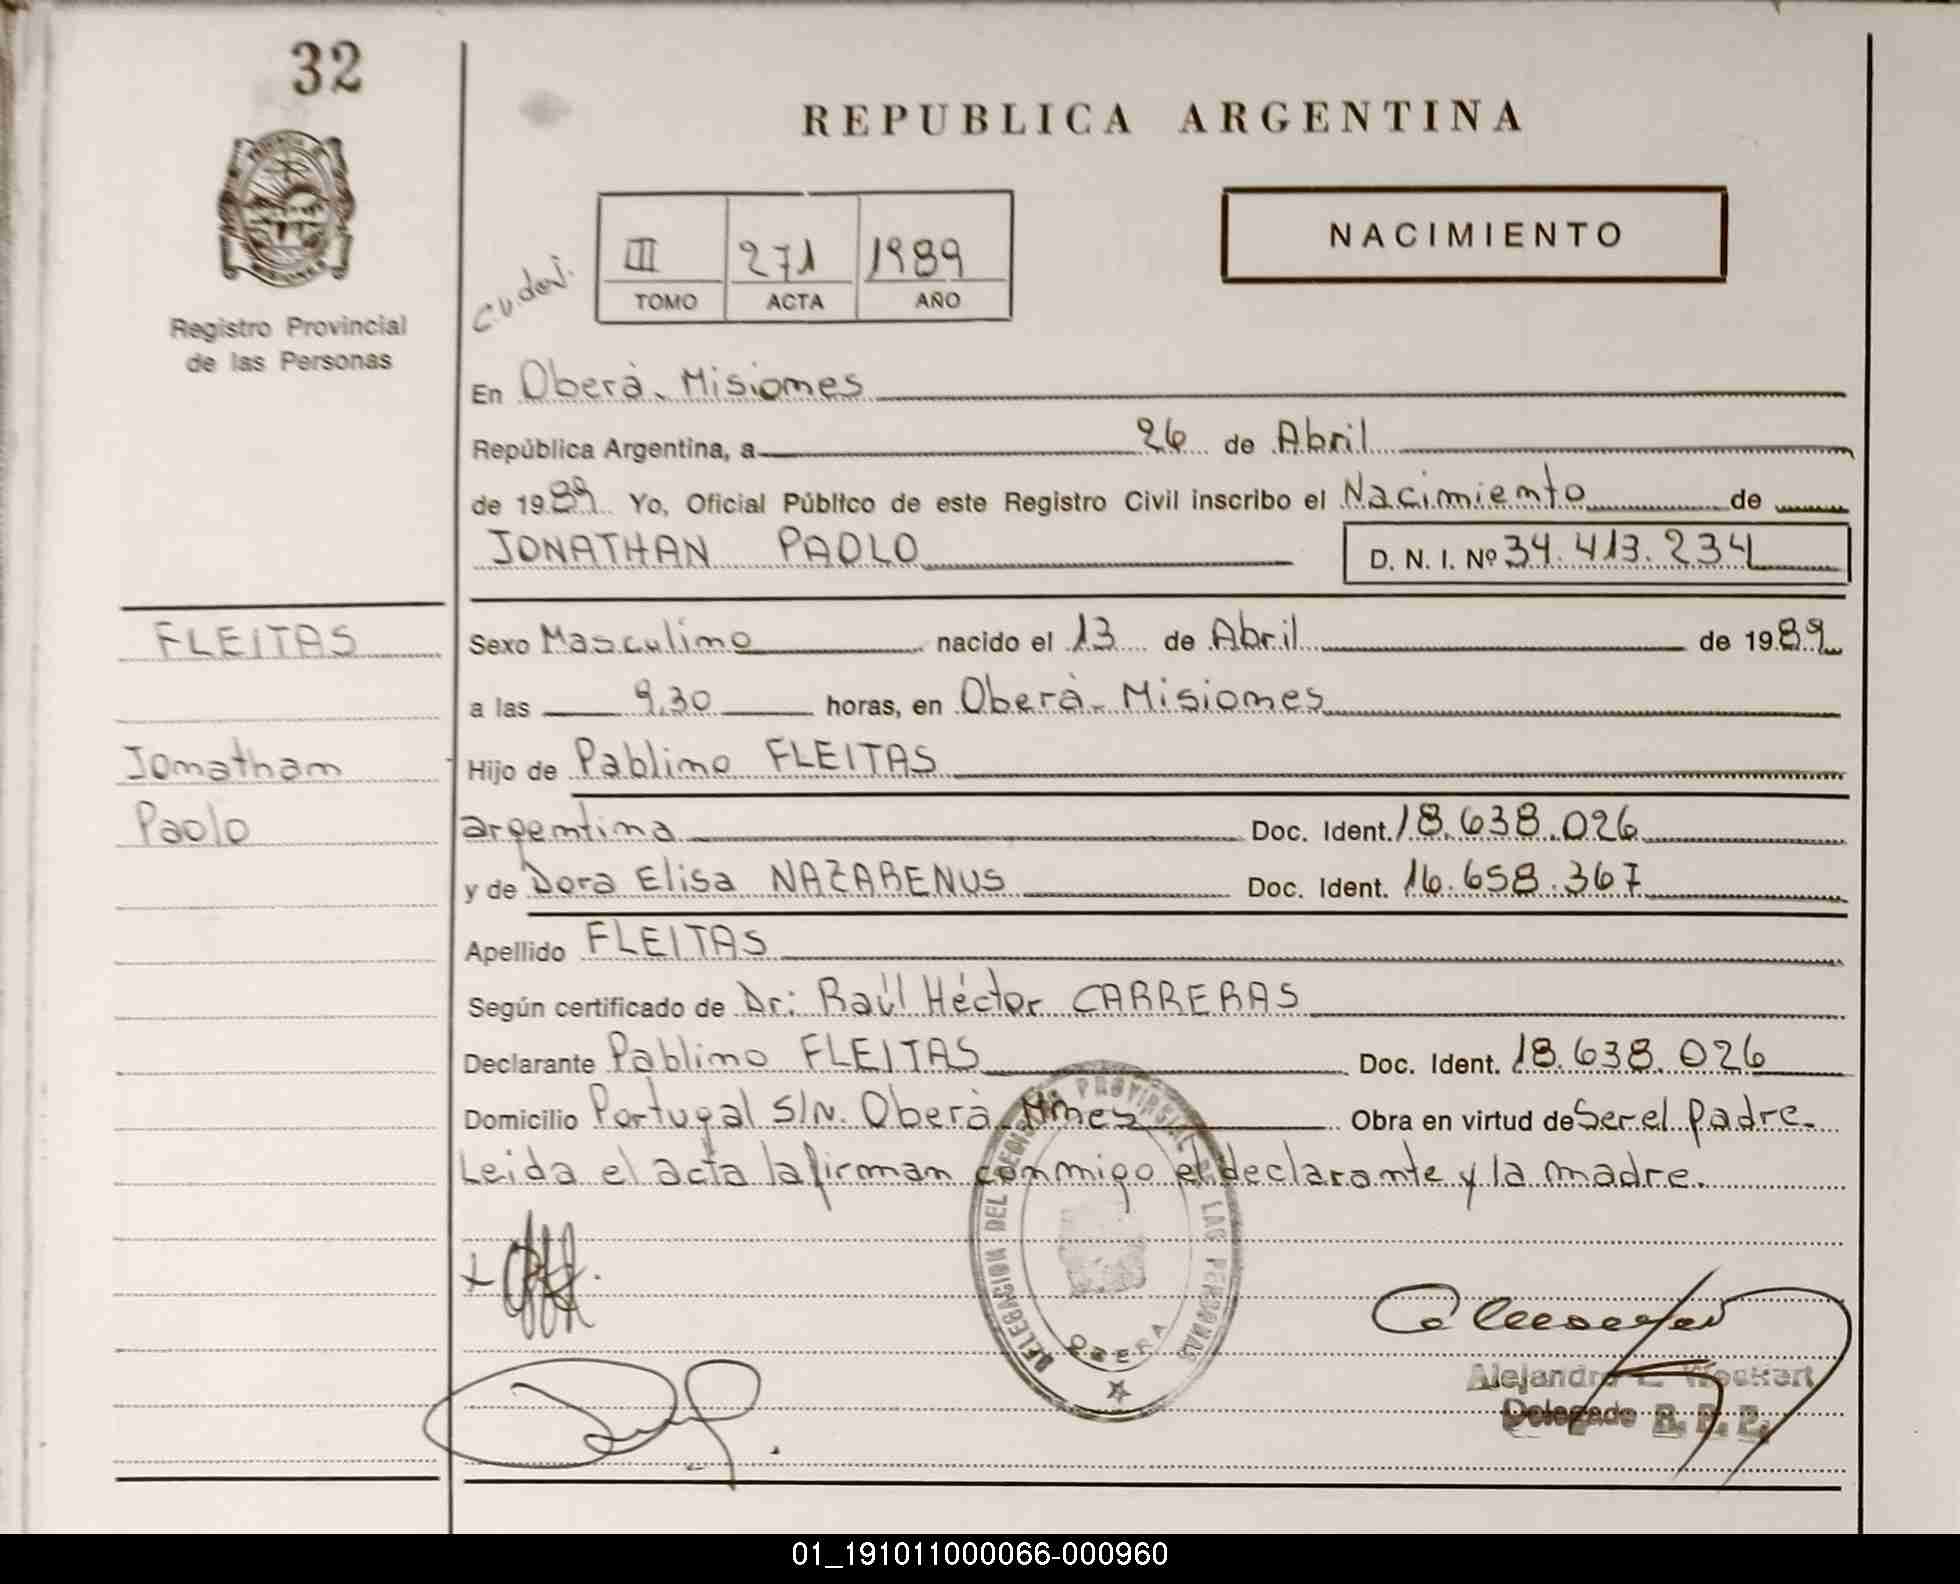 32
REPUBLICA ARGENTINA
NACIMIENTO
III 271 1989
TOMO ACTA AÑO
Registro Provincial
de las Personas
En Oberà - Misiones
República Argentina, a 26 de Abril
de 1989 Yo, Oficial Público de este Registro Civil inscribo el Nacimiento de
JONATHAN PAOLO D. N. I. Nº 34.413.234
FLEITAS
Jonathan
Paolo
Sexo Masculino nacido el 13 de Abril de 1989
a las 9,30 horas, en Oberà - Misiones
Hijo de Pablino FLEITAS
argentina Doc. Ident. 18.638.026
y de Dora Elisa NAZARENUS Doc. Ident. 16.658.367
Apellido FLEITAS
Según certificado de Dr: Raúl Héctor CARRERAS
Declarante Pablino FLEITAS Doc. Ident. 18.638.026
Domicilio Portugal S/N. Oberà Mnes Obra en virtud de Ser el padre.
Leida el acta la firman conmigo el declarante y la madre.
DELEGACION DEL REGISTRO PROVINCIAL DE LAS PERSONAS
OBERA
Alejandro
Delegado R. P. P.
01_191011000066-000960